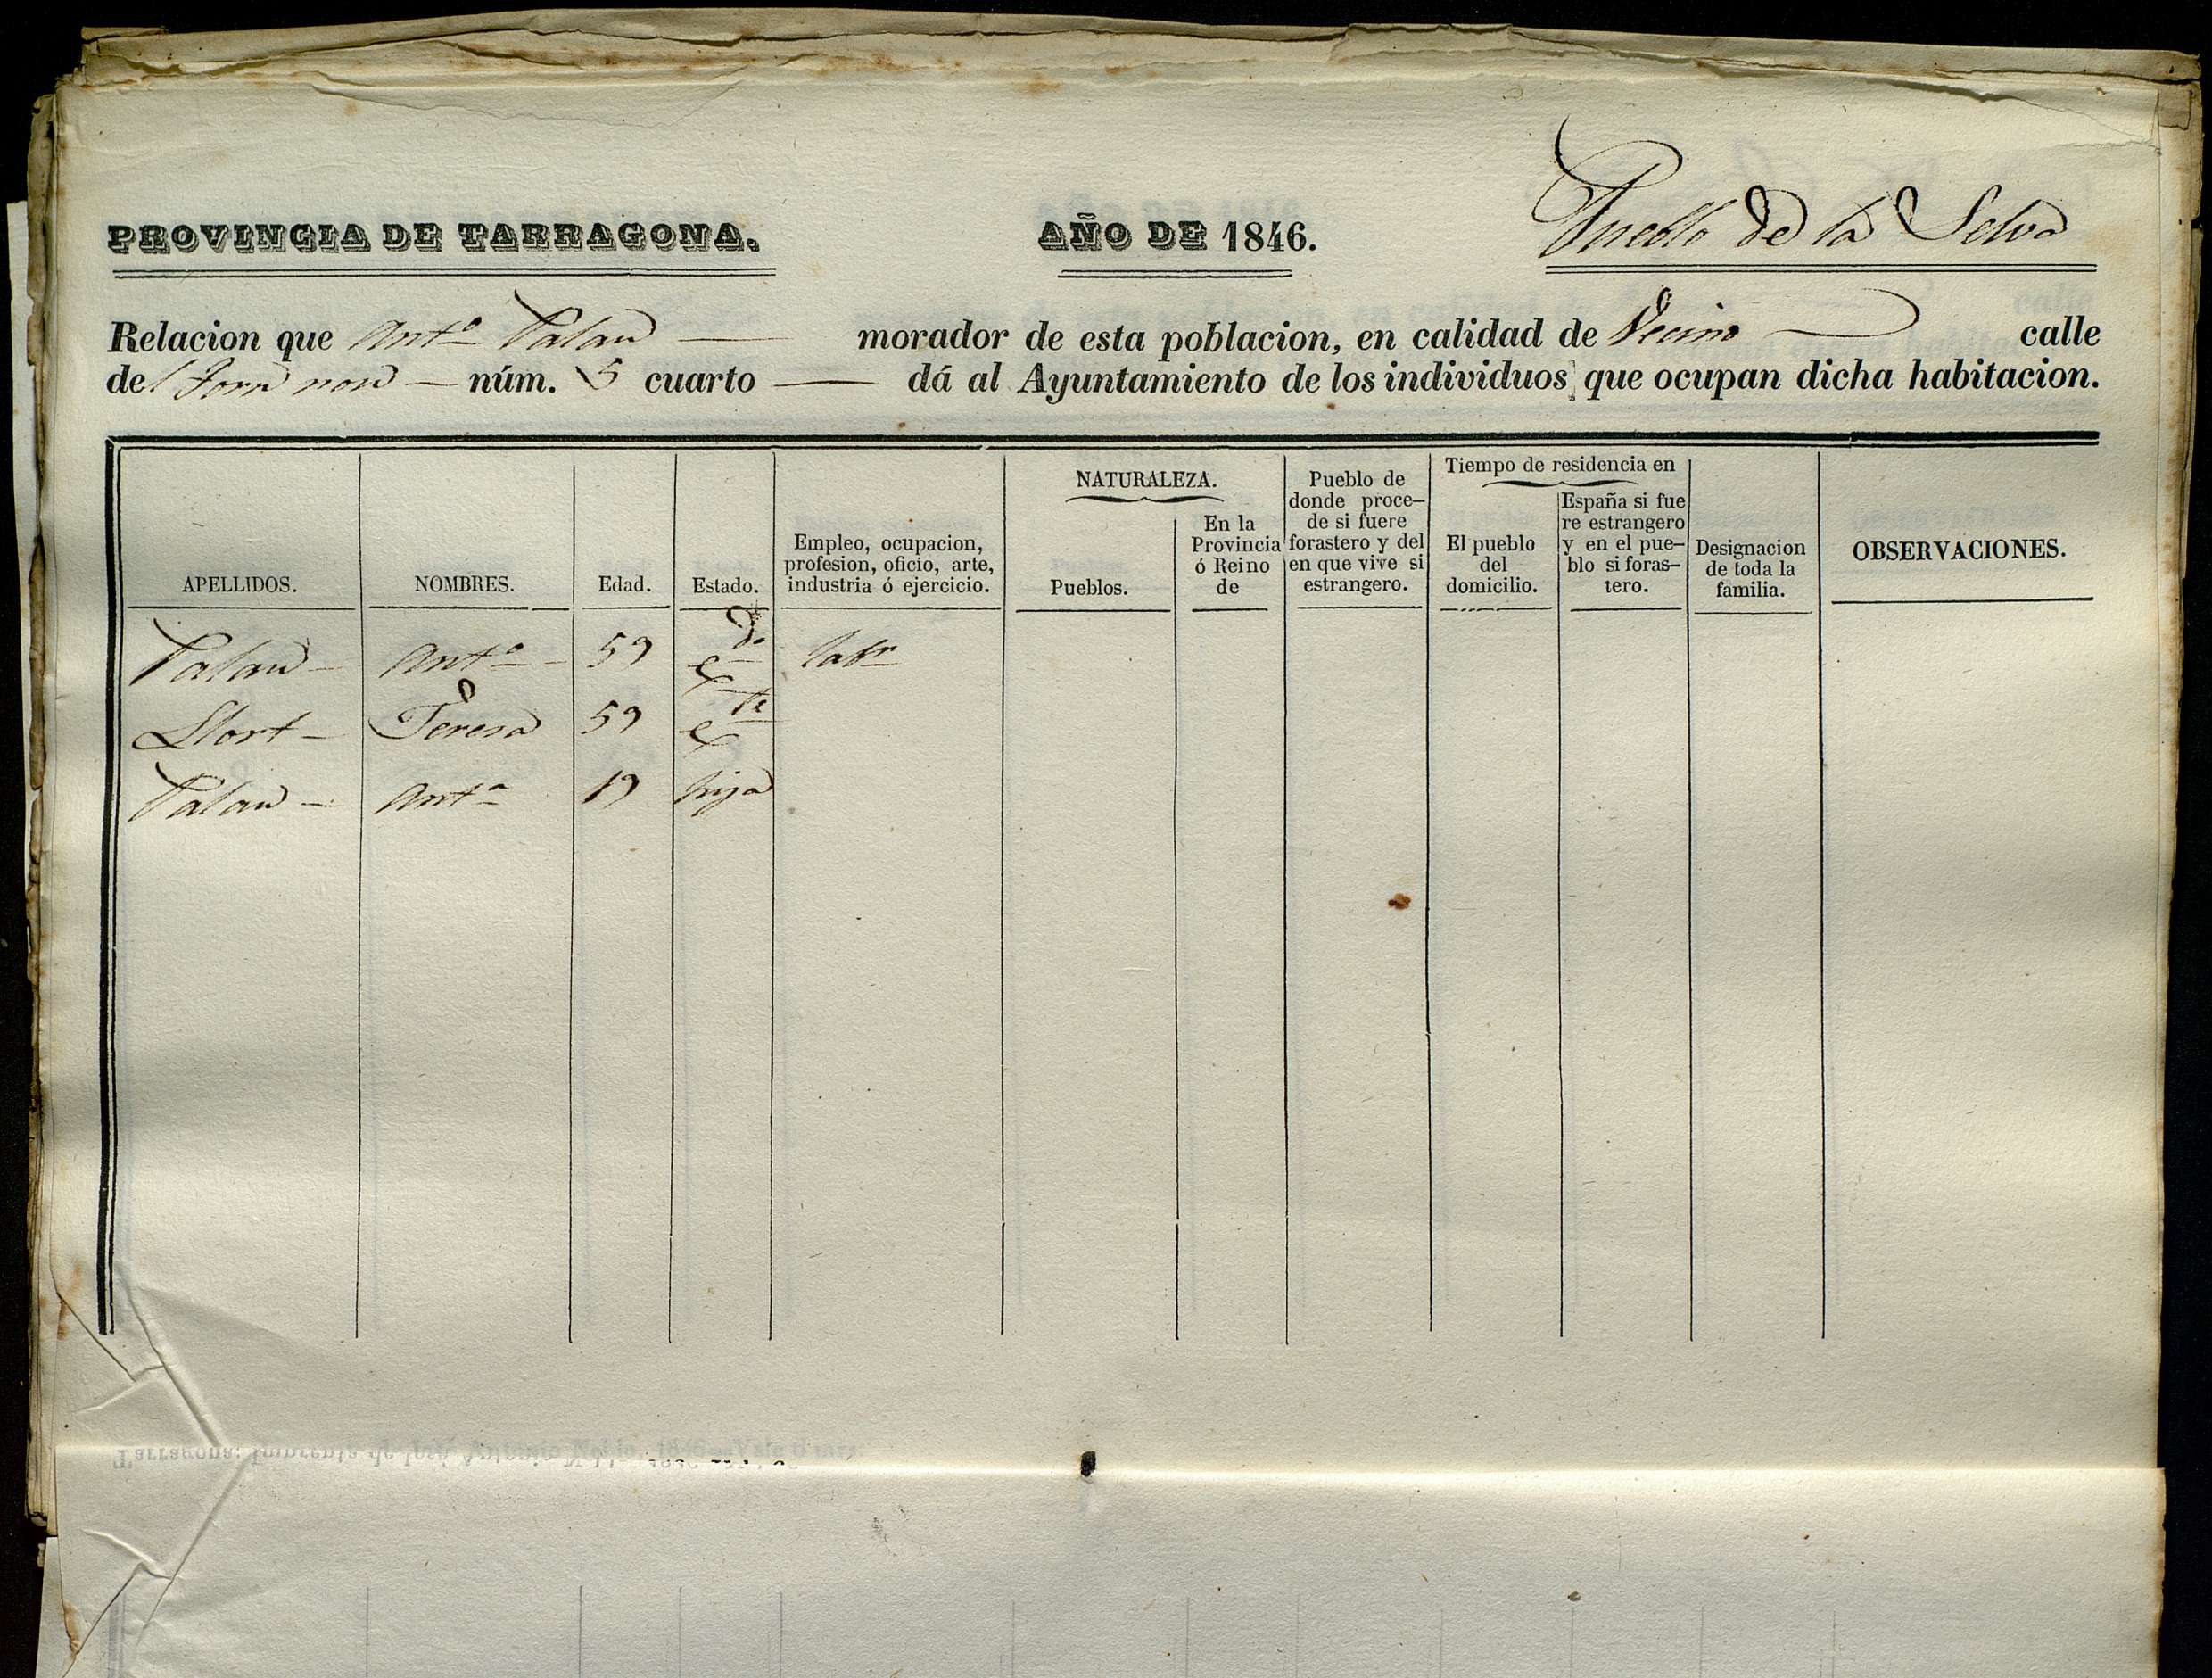 PROVINCIA DE TARRAGONA. AÑO DE 1846. Pueblo de la Selva
Relacion que Antº Palau — morador de esta poblacion, en calidad de Vecino — calle
del Forn nou — núm. 5 cuarto — dá al Ayuntamiento de los individuos que ocupan dicha habitacion.
APELLIDOS.
NOMBRES.
Edad.
Estado.
Empleo, ocupacion,
profesion, oficio, arte,
industria ó ejercicio.
NATURALEZA.
Pueblos.
En la
Provincia
ó Reino
de
Pueblo de
donde proce-
de si fuere
forastero y del
en que vive si
estrangero.
Tiempo de residencia en
El pueblo
del
domicilio.
España si fue
re estrangero
y en el pue-
blo si foras-
tero.
Designacion
de toda la
familia.
OBSERVACIONES.
Palau — Antº — 59 labr
Llort — Teresa 59
Palau — Antª 19 hija